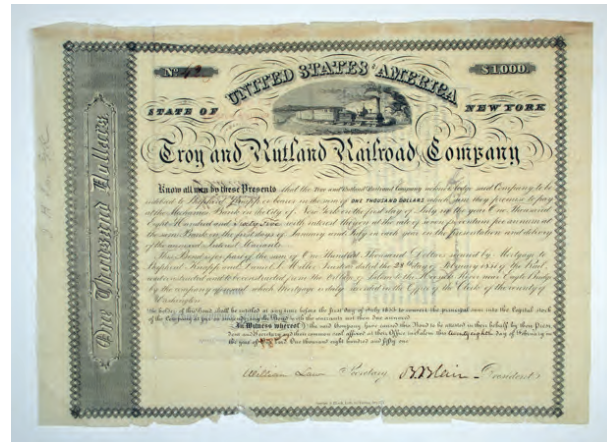 No 42
$1,000
UNITED STATES AMERICA
STATE OF NEW YORK
Troy and Rutland Railroad Company
Know all men by these Presents that the Troy and Rutland Railroad Company acknowledge said Company to be
indebted to Shepherd Knapp or bearer in the sum of ONE THOUSAND DOLLARS which sum they promise to pay
at the Mechanics Bank in the City of New York on the first day of July in the year One Thousand
Eight Hundred and Sixty Five with interest thereon at the rate of seven per centum per annum at
the same Bank on the first days of January and July in each year on the presentation and delivery
of the annexed Interest Warrants
This Bond is for part of the sum of Thousand Dollars secured by Mortgage to
Shepherd Knapp and Daniel L. Miller Trustees dated the 28th day of February 1851 of the Road
constructed and to be constructed from the Village of Salem to the State line near Eagle Bridge
by the company which Mortgage is duly recorded in the Office of the Clerk of the county of
Washington
The holder of this Bond shall be entitled at any time before the first day of July 1855 to convert the principal sum into the Capital stock
of the Company at par on surrendering the Bond with the warrants not then due annexed
In Witness whereof the said Company have caused this Bond to be attested in their behalf by their Presi-
dent and Secretary and their common seal affixed at their Office in Salem this twenty eighth day of February in
the year of our Lord One thousand eight hundred and fifty one
William Law Secretary
President
One Thousand Dollars